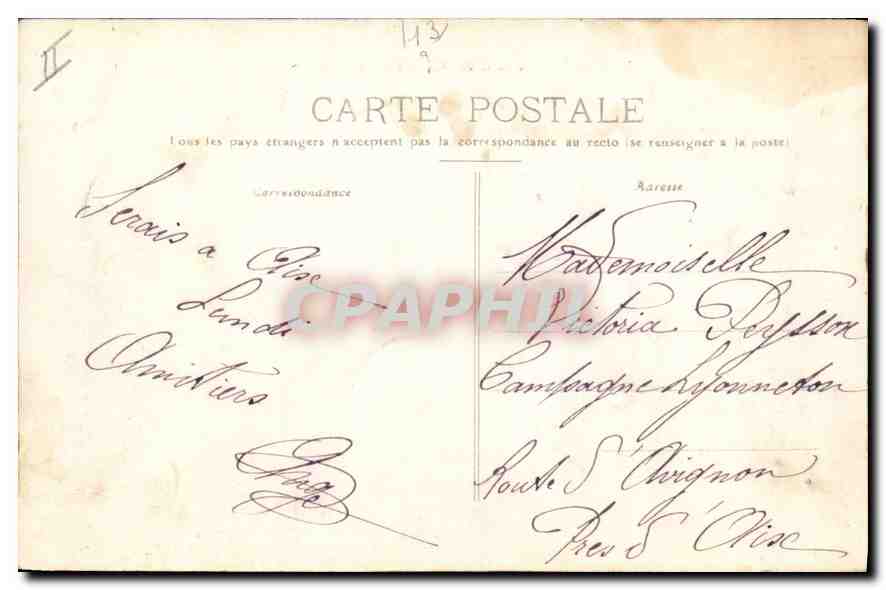 II
113
9
CARTE POSTALE
Tous les pays étrangers n'acceptent pas la correspondance au recto (se renseigner à la poste)
Correspondance
Serais a Aix
Lundi
Amitiers
Ange
Adresse
Mademoiselle
Victoria Peysson
Campagne Lyonneton
Route d'Avignon
Pres d'Aix
CPAPHIL